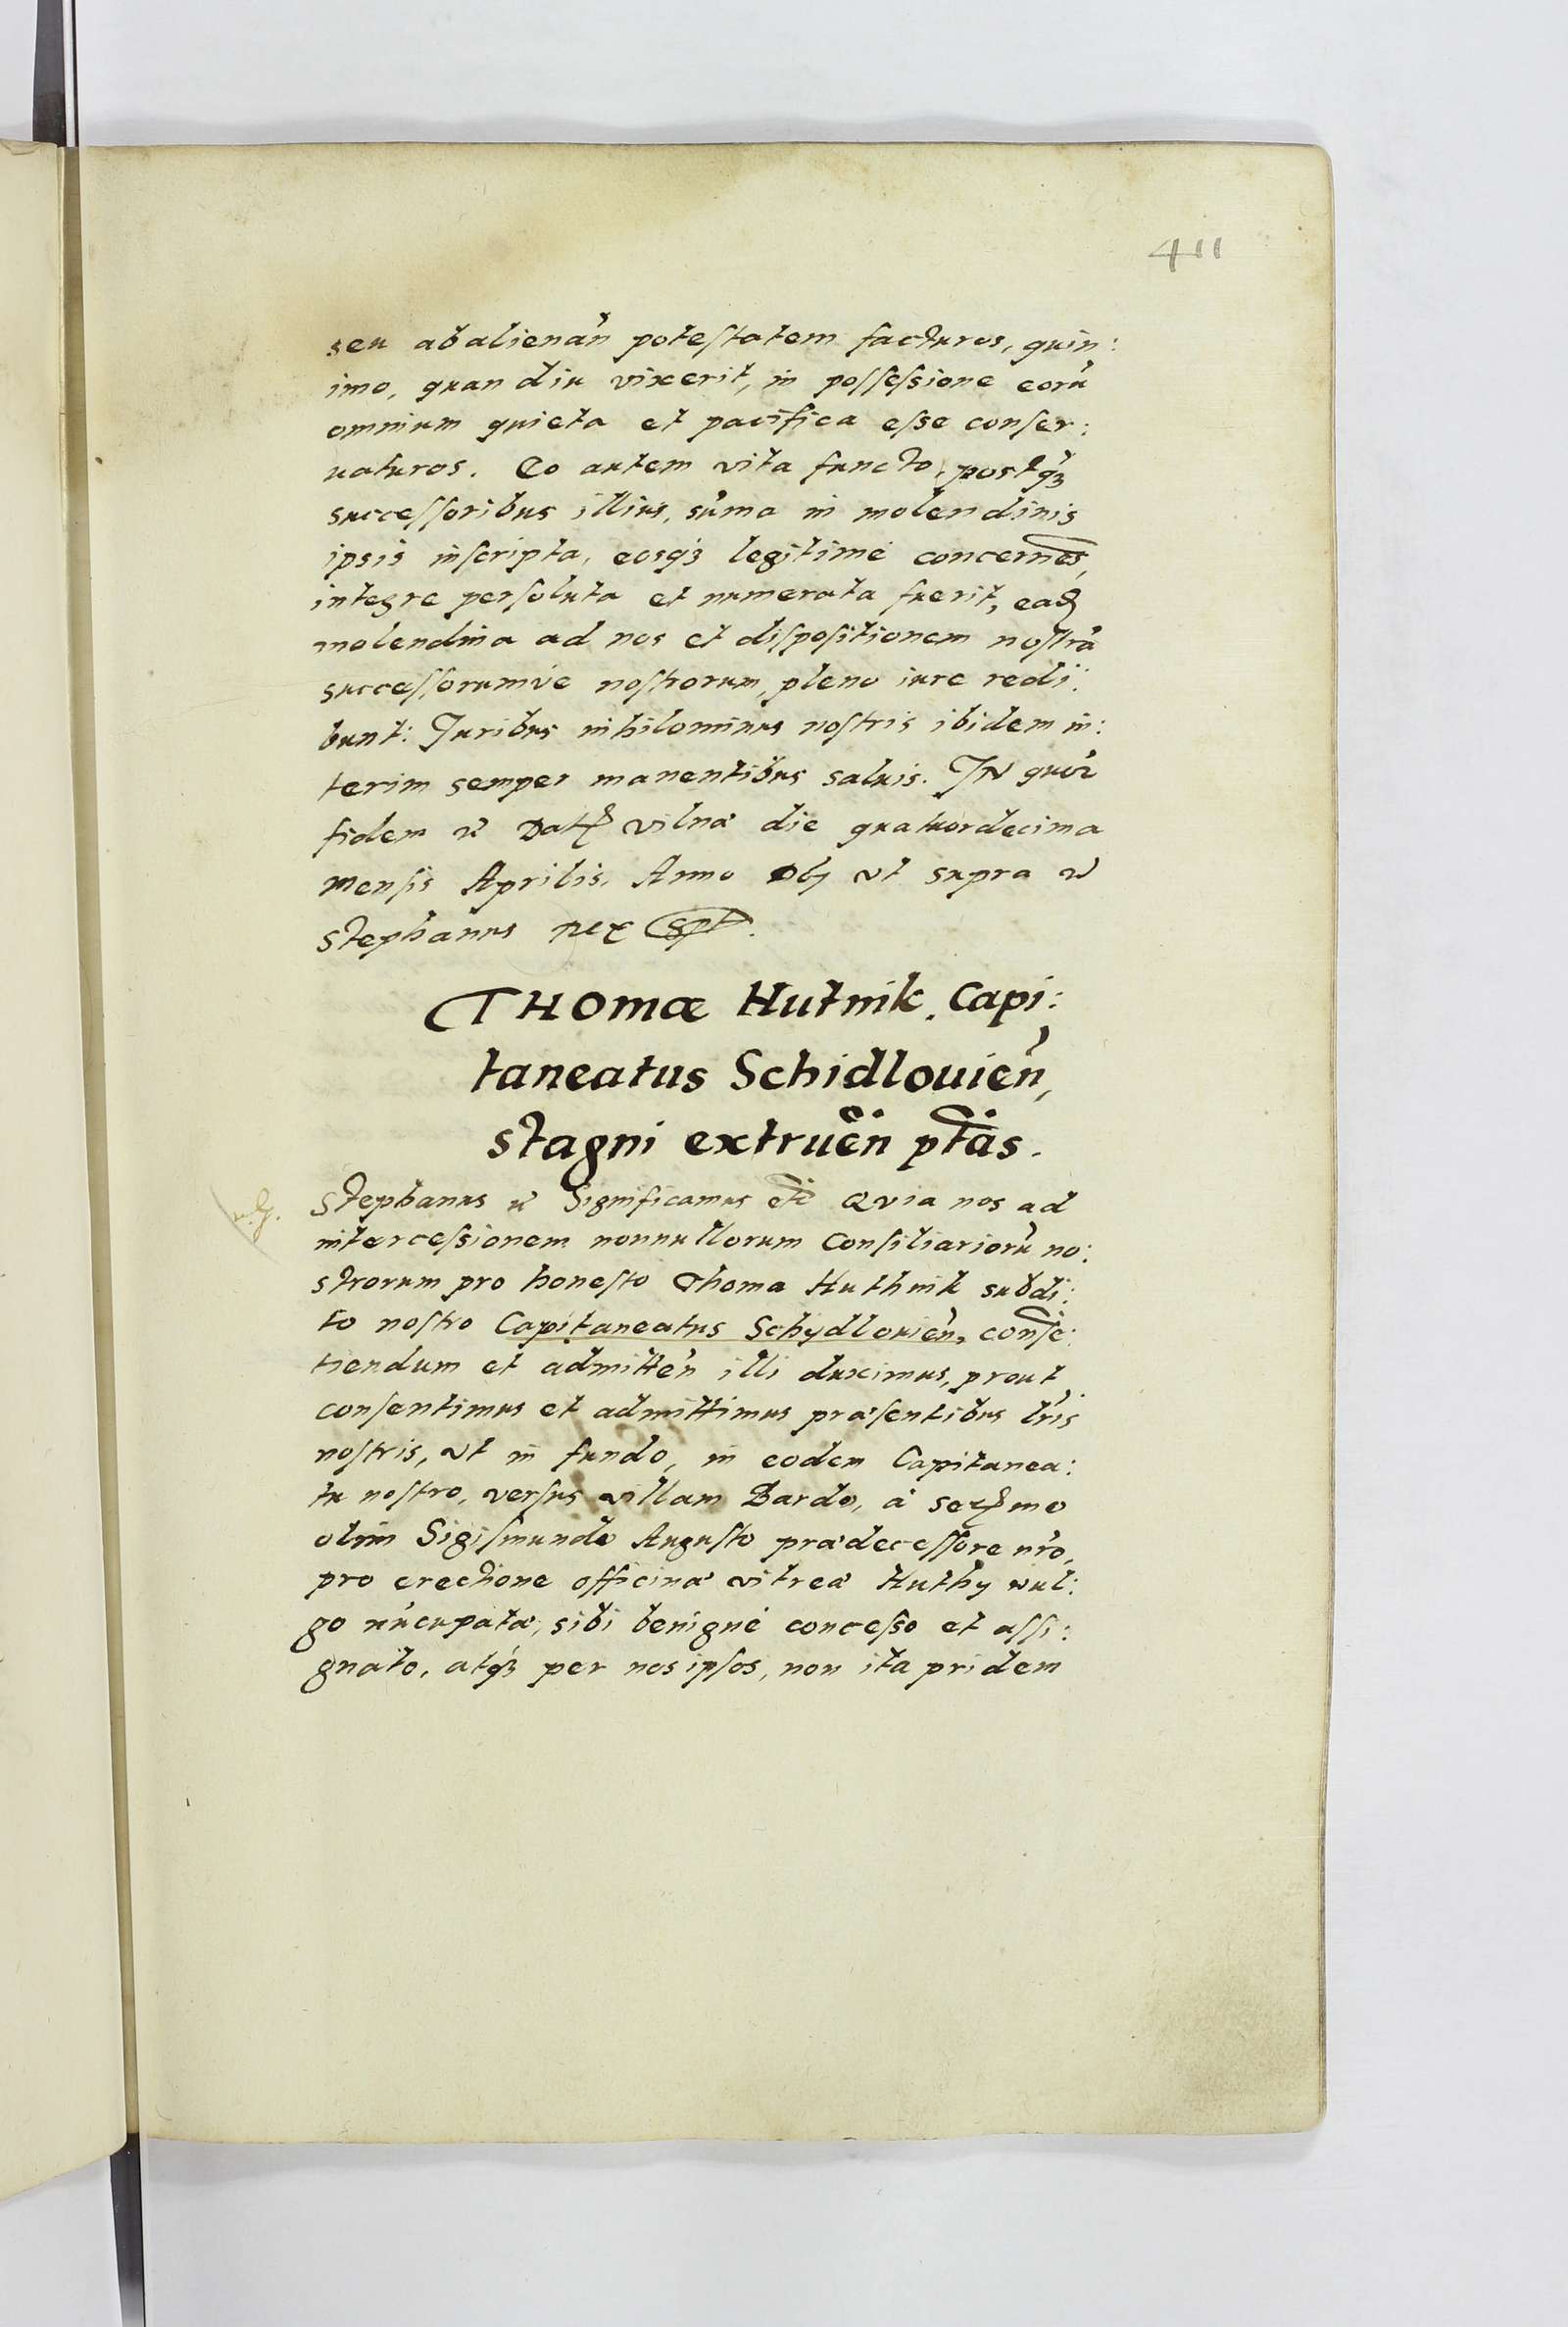 411
seu abalienan̄ potestatem facturos, quin:
imo, quan diu vixerit, in possessione eorū
omnium quieta et pacifica esse conser:
uaturos. Eo autem vita functo, postq̄ꝫ
successoribus illius, sūma in molendinis
ipsis inscripta, eosqꝫ legitimè concernēs,
integre persoluta et numerata fuerit, eadꝫ
molendina ad nos et dispositionem nostrā
successorumvè nostrorum, pleno iure redi:
bunt: Juribus nihilominus nostris ibidem in:
terim semper manentibus saluis. IN quor̄
fidem etc Datꝭ vilnæ die quatuordecima
Mensis Aprilis, Anno Dn̄j vt supra etc
Stephanus Rex Spt.
THOMÆ Hutnik, Capi:
taneatus Schidlouien̄,
stagni extruen̄ ptās.
Stephanus etc Significamus etc Quia nos ad
intercessionem nonnullorum Consiliariorū no:
strorum pro honesto Thoma Huthnik subdi:
to nostro Capitaneatus Schydlouien̄, consē:
tiendum et admitten̄ illi duximus, prout
consentimus et admittimus præsentibus lrīs
nostris, vt in fundo, in eodem Capitanea:
tu nostro, versus villam Bardo, à Serꝭmo
olim Sigismundo Augusto prædecessore nrō,
pro erectione officinæ vitreæ Huthy vul:
go nūcupatæ, sibi benignè concesso et assi:
gnato, atqꝫ per nos ipsos, non ita pridem